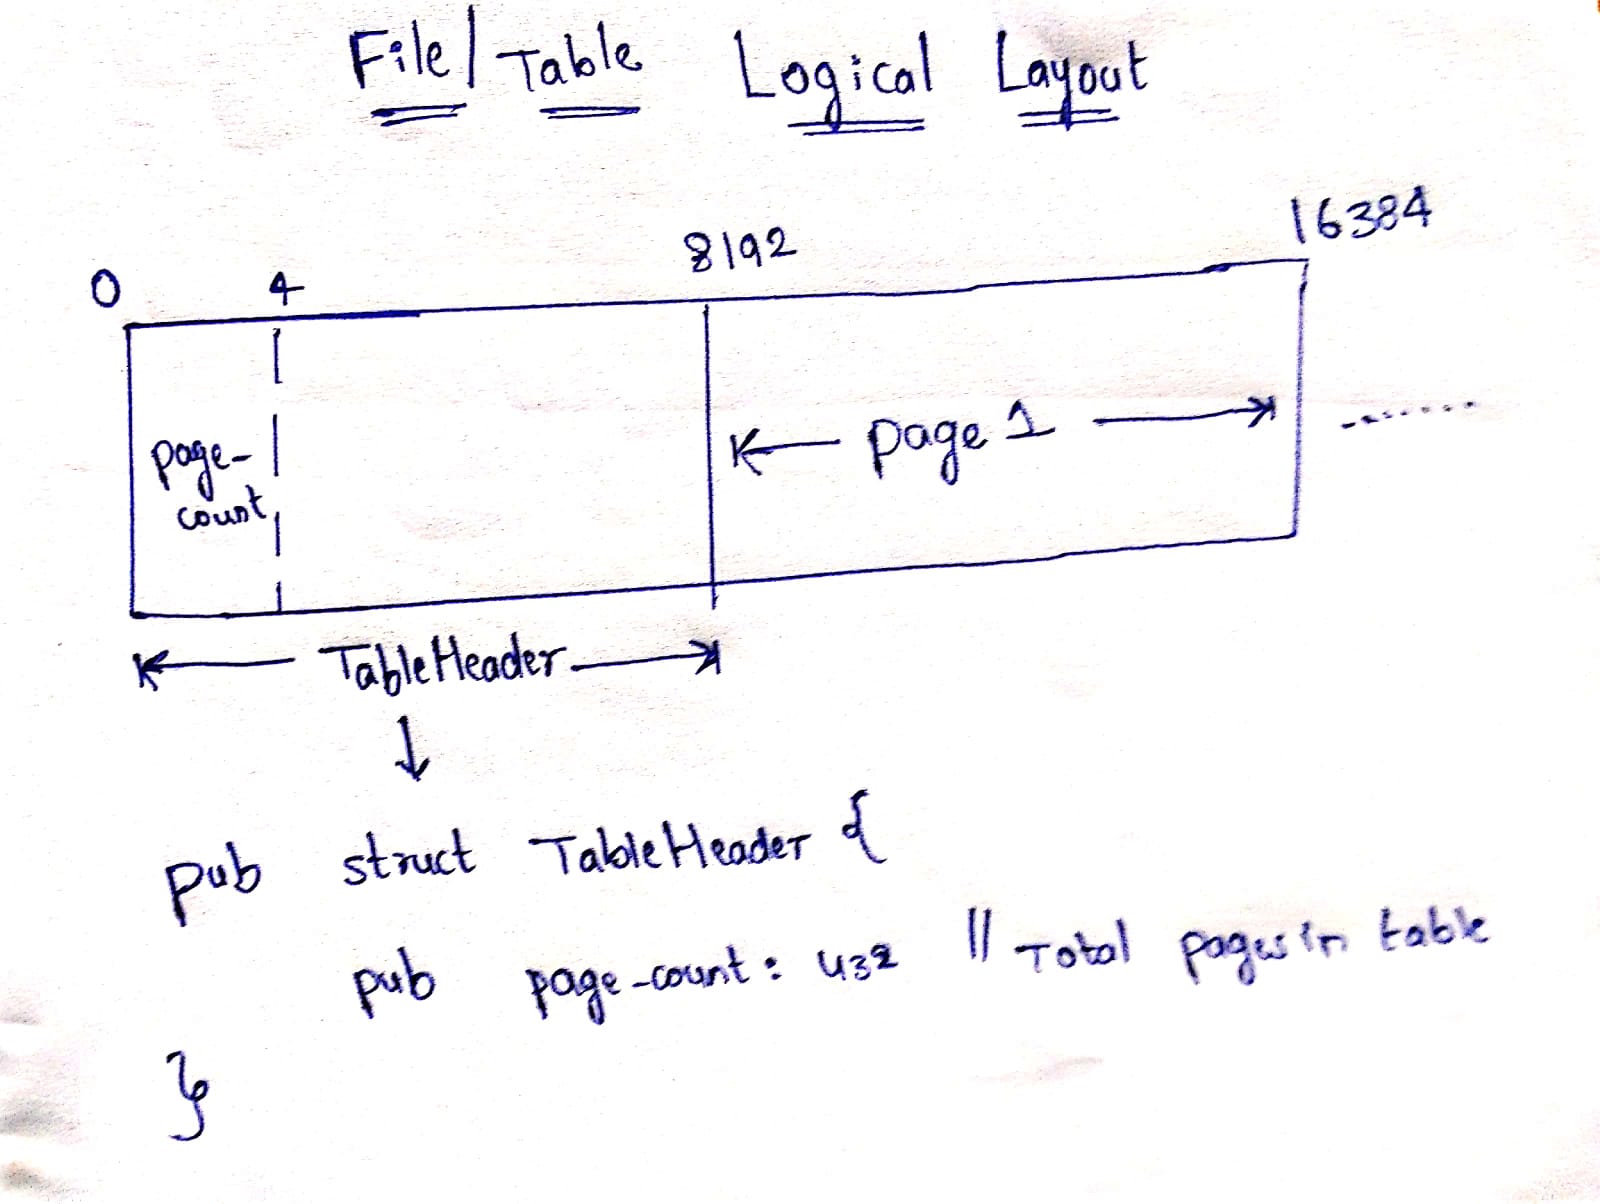 File/Table Logical Layout
0 4 8192 16384
page-
count
← page 1 → .......
← TableHeader →
↓
pub struct TableHeader {
pub page-count: u32 // Total pages in table
}